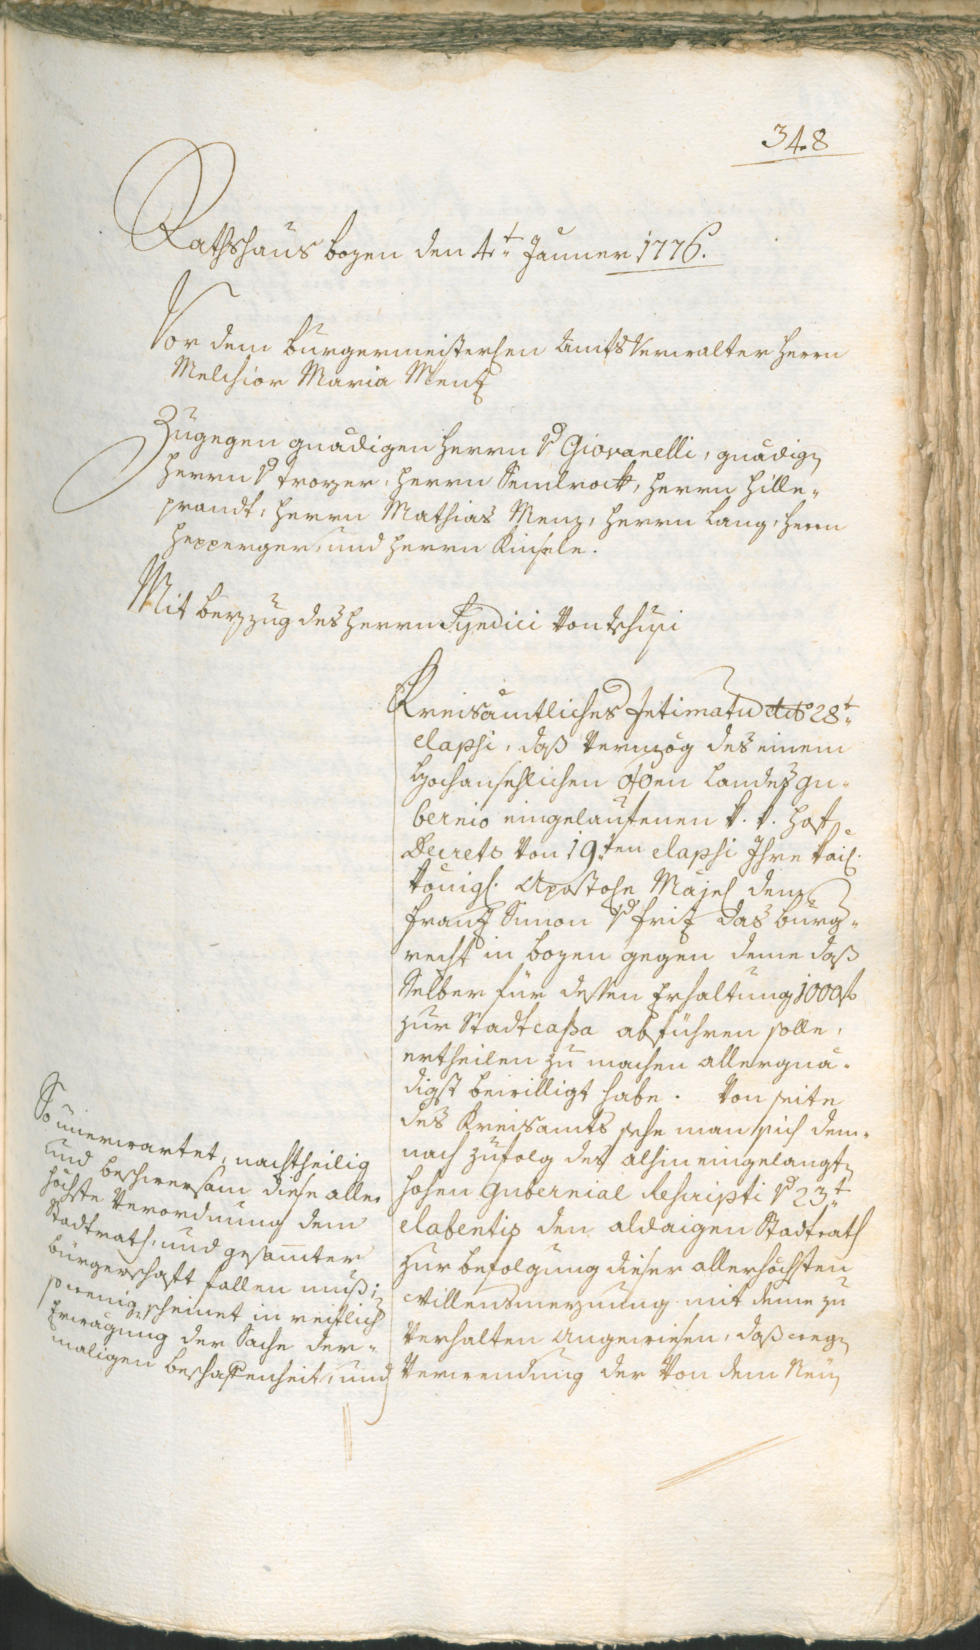 348
Rathshaus bozen den 4t Jänner 1776.
Vor dem burgermeisterlen Amts Verwalter herrn
Melchior Maria Menz
Zugegen gnädigen herrn v Giovanelli, gnädigen
herrn v Troyer, herrn Semlrockh, herrn hille-
prandt, herrn Mathias Menz, herrn lang, herrn
hepperger, und herrn Kinsele.
Mit beyzug des herrn Syndici von tschusi
Kreisämtliches Intimatum dtto 28t
elapsi, daß vermög des einem
hochansehlichen oöen landesgu-
bernio eingelaufenen k. k. hof
Decrets von 19ten elapsi Ihre kaisl.
königl. Apostole Majest dem
franz Simon v friz das burg-
recht in bozen gegen deme daß
Selber für dessen Erhaltung 1000 f
zur Stadtcassa abführen solle,
ertheilen zu machen allergnä-
digst bewilligt habe. Von seite
des Kreisamts sehe man sich dem-
nach zufolg des alhin eingelangten
hohen Gubernial Rescripti v 23t
elabentis den aldaigen Stadtrath
zur befolgung dieser allerhöchsten
Willensmeynung mit deme zu
verhalten Angewiesen, daß wegen
Verwendung der von dem Neuen
So unerwartet, nachtheilig
und beschwersam diese aller-
höchste Verordnung dem
Stadtrath, und gesamter
bürgerschaft fallen muß;
so wenig scheinet in reiflicher
Erwägung der Sache der-
maligen beschaffenheit, und